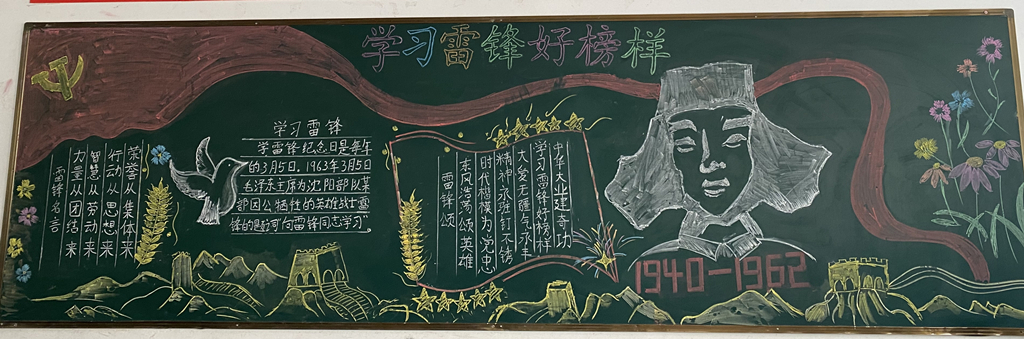 学习雷锋好榜样
荣誉从集体来
行动从思想来
智慧从劳动来
力量从团结来
雷锋名言
学习雷锋
学雷锋纪念日是每年
的3月5日. 1963年3月5日
毛泽东主席为沈阳部队某
部因公牺牲的英雄战士雷
锋的题词“向雷锋同志学习”
中华大业建奇功
学习雷锋好榜样
大爱无疆气
精神永钉不锈
时代楷模为党忠
东风浩荡颂英雄
雷锋颂
1940—1962